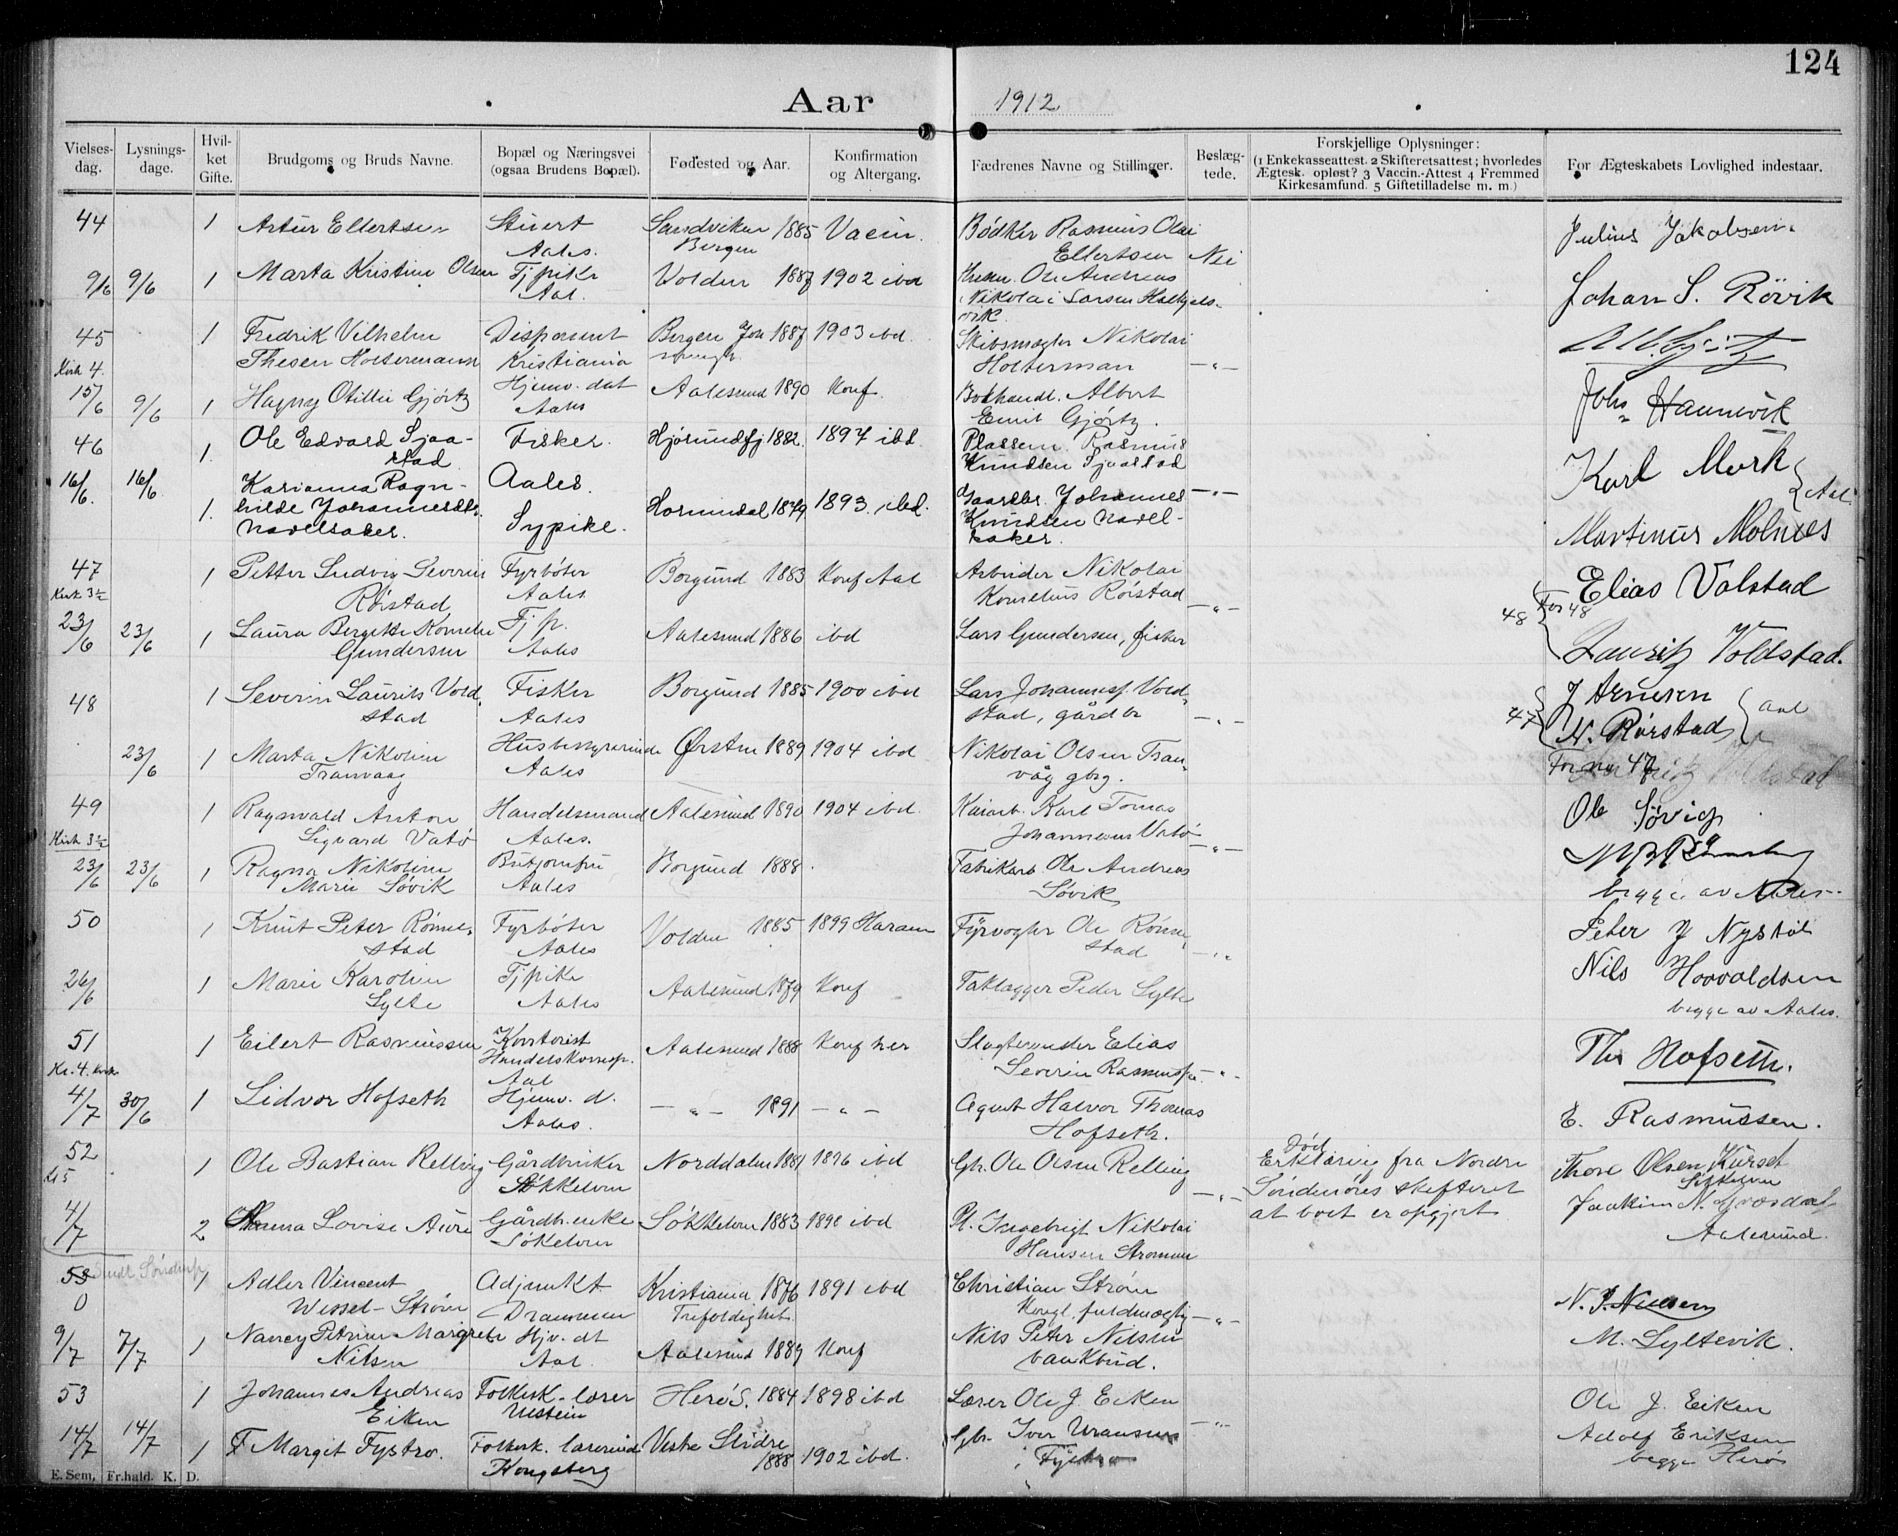 124
Aar 1912
Vielsesdag. Lysningsdage. Hvilket Gifte. Brudgoms og Bruds Navne. Bopæl og Næringsvei (ogsaa Brudens Bopæl). Fødested og Aar. Konfirmation og Altergang. Fædrenes Navne og Stillinger. Beslægtede. Forskjellige Oplysninger: (1 Enkekasseattest. 2 Skifteretsattest; hvorledes Ægtesk. opløst? 3 Vaccin.-Attest 4 Fremmed Kirkesamfund. 5 Giftetilladelse m. m.) For Ægteskabets Lovlighed indestaar.
44 1 Artur Ellertsen Stuert Sandviken 1885 Vaccin. Bødker Rasmus Olai Julius Jakobsen.
Aales. Bergen Ellertsen Nei
9/6 9/6 1 Marta Kristine Olsen Tjpike Volden 1887 1902 ibd Ole Andreas Johan S. Rövik
Aal. Nikolai Larsen
vik.
45 1 Fredrik Vilhelm Disponent Bergen 1887 1903 ibd. Skibsmægler Nikolai
Kirk 4. Thesen Holtermann Kristiania Holterman —"—
15/6 9/6 1 Hagny Otilie Gjörtz Hjemv. dat Aalesund 1890 Konf. Bokhandl. Albert Johs Hannevik
Aales Emil Gjörtz.
46 1. Ole Edvard Sjaa- Fisker. Hjørundfj 1882. 1897 ibd. Plassem. Rasmus Karl Mork
stad Knudsen Sjaastad
16/6. 16/6 Karianna Ragn- Aales. —"— Aal.
1. hilde Johannesdtr. Sypike. Hornindal 1879 1893. ibd. Gaardbr. Johannes
Navelsaker. Knudsen Navel- Martinus Molnes
saker.
47 1 Petter Ludvig Severin Fyrbøter Borgund 1883 Konf Aal Arbeider Nikolai Elias Valstad
Kirk 3½ Rörstad Aales Kornelius Rörstad —"— 48 For 48
23/6 23/6 1 Laura Bergitte Kornelie Tjp. Aalesund 1886 ibd Lars Gundersen, fisker Lauritz Voldstad.
Gundersen Aales
48 1 Severin Laurits Vold Fisker Borgund 1885 1900 ibd Lars Johanness. Vold J Arnesen
stad Aales stad, gårdbr —"— 47 N. Rörstad aal
23/6 1 Marta Nikoline Husbestyrerinde Ørsten 1889 1904 ibd Nikolai Olsen Tran- For no 47
Tranvaag Aales våg gbrg.
49 1 Ragnvald Anton Handelsmand Aalesund 1890 1904 ibd Kaiarb. Karl Tomas Ole Sövig
Kirk 3½ Sigvard Vatö Aales. Johannesen Vatö —"—
23/6 23/6 1 Ragna Nikoline Butjomfru Borgund 1888. Fabrikarb Ole Andreas
Marie Søvik Aales Søvik begge av Aales-
50 1 Knut Peter Rømme- Fyrbøter Volden 1885 1899 Haram Fyrvogter Ole Rømme- Peter J Nystöl
stad Aales stad —"—
26/6 1 Marie Karoline Tjpike Aalesund 1879 Konf Taklægger Peder Sylte Nils Hovaldsen
Sylte Aales begge av Aales.
51 1 Eilert Rasmussen Kontorist Aalesund 1888 Konf her Slagtermester Elias Ths Hofseth.
Kl. 4. Kirk Handelskorresp. Severin Rasmussen —"—
Aal
4/7 30/6 1 Lidvor Hofseth Hjemv. d. —"— 1891 —"— Agent Halvor Thomas E. Rasmussen.
Aales. Hofseth.
52 1 Ole Bastian Relling Gårdbruker Norddalen 1881 1896 ibd Gbr. Ole Olsen Relling Död Thore Olsen Kurset
Kl 5 Søkkelven —"— Erklæring fra Nordre Søkkelven
4/7 2 Anna Lovise Aure Gårdbr. enke Søkkelven 1883 1898 ibd Pl. Ingebrigt Nikolai Söndmöres skifteret Joakim N.
Søkelven Hansen Strømmen at boet er opgjort Aalesund.
53 1 Adler Vincent Adjunkt Kristiania 1876 1891 ibd Christian Strøm N. P. Nielsen
0 Wessel-Strøm Drammen Trefoldighet. Kongl. fuldmægtig —"—
9/7 7/7 1 Nancy Petrine Margrete Hjv. dt Aalesund 1889 Konf Nils Peter Nilsen M. Syltevik.
Nilsen Aal. bankbud.
53 1 Johannes Andreas Folkesk-lærer Herö S. 1884 1898 ibd Lærer Ole J. Eiken Ole J. Eiken
Eiken Ulstein —"—
14/7 14/7 1 Margit Fystro. Folkesk. lærerinde Vestre Slidre Gbr. Iver Adolf Eriksen
Kongsberg 1888 1902 ibd. Fystro begge Herö
E. Sem, Fr.hald. K. D.